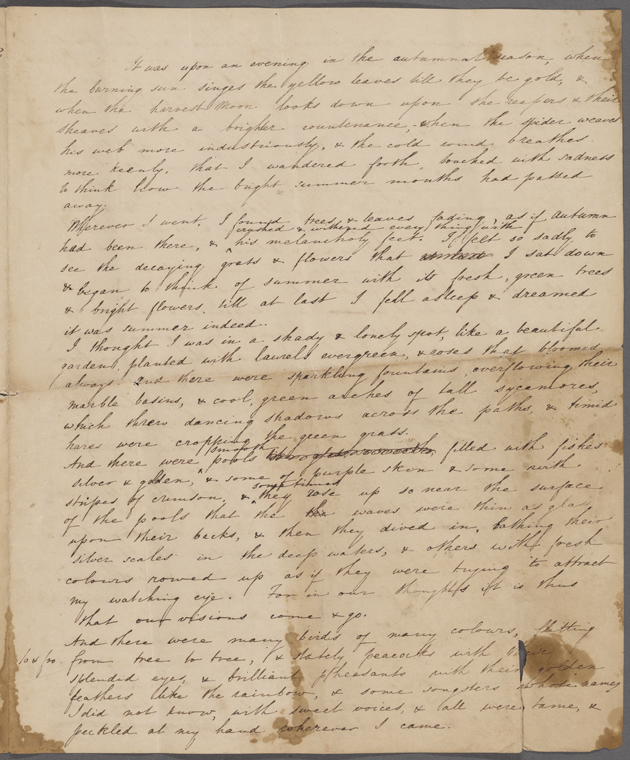 It was upon an evening in the autumnal season, when
the burning sun singes the yellow leaves till they be gold, &
when the harvest Moon looks down upon the reapers & their
sheaves with a brighter countenance, when the spider weaves
his web more industriously, & the cold wind breathes
more keenly, that I wandered forth, touched with sadness
to think how the bright summer months had passed
away.
Wherever I went, I found trees, & leaves fading, as if Autumn
crushed & withered every thing with
had been there, & his melancholy feet. I felt so sadly to
see the decaying grass & flowers that I sat down
& began to think of summer with its fresh, green trees
& bright flowers, till at last I fell asleep & dreamed
it was summer indeed.
I thought I was in a shady & lonely spot, like a beautiful
garden, planted with laurels evergreen, & roses that bloomed
always: And there were sparkling fountains, overflowing their
marble basins, & cool, green arches of tall sycamores,
which threw dancing shadows across the paths, & timid
hares were cropping the green grass.
smooth
And there were pools filled with fishes
silver & golden, & some of purple skin & some with
sometimes
stripes of crimson, & they rose up so near the surface
of the pools that the waves were thin as glass
upon their backs, & then they dived in, bathing their
silver scales in the deep waters, & others with fresh
colours rowed up as if they were trying to attract
my watching eye. For in our thoughts it is thus
that our visions come & go.
And there were many birds of many colours, flitting
to & fro
from tree to tree, & stately peacocks with their
splendid eyes, & brilliant pheasants with their golden
feathers like the rainbow, & some songsters whose names
I did not know, with sweet voices, & all were tame, &
peckled at my hand wherever I came.